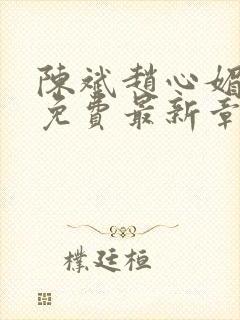 陳斌趙心媚
免費最新章
樸廷桓